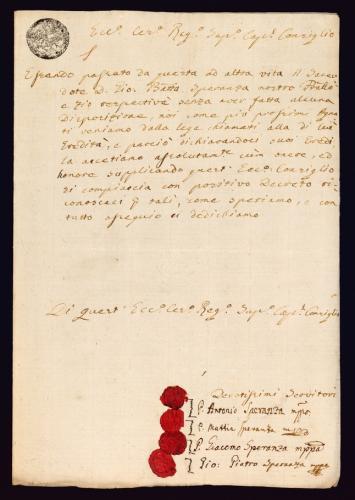 Ecc.º Ces.º Reg.º Sup.º Cap.l Consiglio
Essendo passato da questa ad altra vita il Sacer
dote D. Gio: Batta Speranza nostro Frallo
e Zio respective senza aver fatta alcuna
disposizione, noi come più prossimi Agna
ti veniamo dalla lege chiamati alla di lui
Eredità, e perciò dichiarandoci suoi Eredi
la accetiamo assolutamte cum onere, ed
honore supplicando quest' Ecc.º Consiglio
di compiacersi con positivo Decreto ri
conoscerci p tali, come speriamo, e con
tutto assequio ci dedichiamo
Di quest' Ecc.º Ces.º Reg.º Sup.º Cap.l Consiglio
Devotissimi Servitori
P. Antonio Speranza mpp.
P. Mattia Speranza
P. Giacomo Speranza mppa
Gio: Pietro Speranza